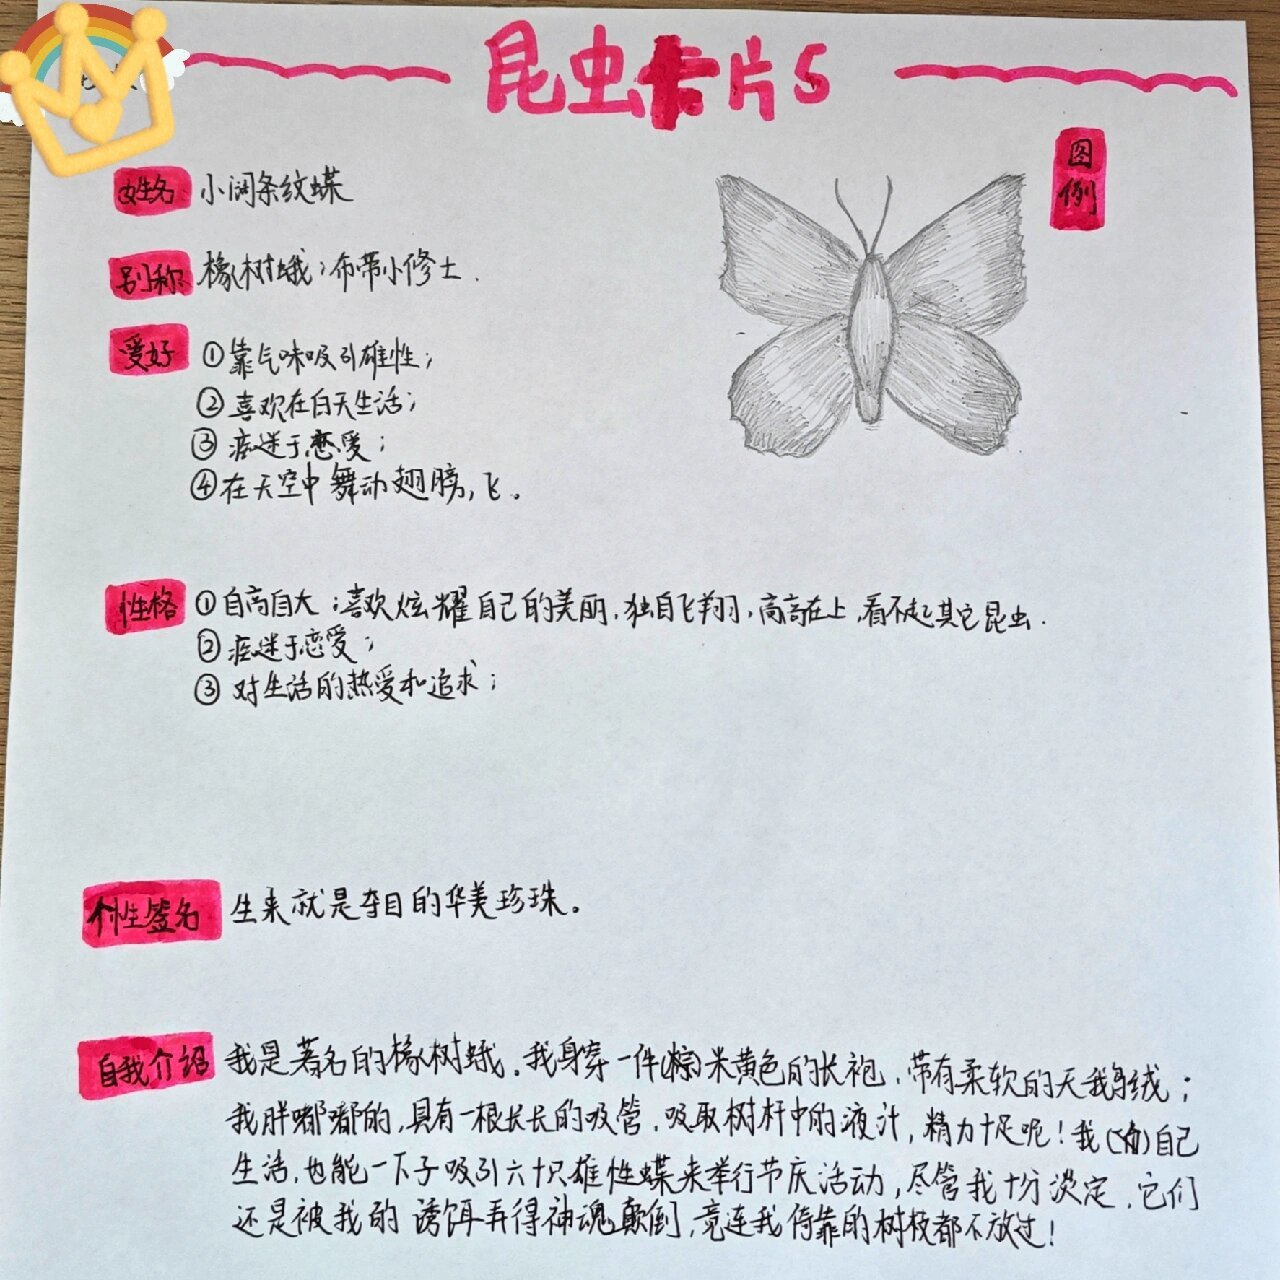 昆虫卡片5
图例
姓名 小阔条纹蝶
别称 橡树蛾;布带小修士.
爱好 ①靠气味吸引雄性;
②喜欢在白天生活;
③痴迷于恋爱;
④在天空中舞动翅膀,飞。
性格 ①自高自大;喜欢炫耀自己的美丽,独自飞翔,高高在上,看不起其它昆虫.
②痴迷于恋爱;
③对生活的热爱和追求;
个性签名 生来就是夺目的华美珍珠。
自我介绍 我是著名的橡树蛾,我身穿一件(棕)米黄色的长袍,带有柔软的天鹅绒;
我胖嘟嘟的,具有一根长长的吸管,吸取树杆中的液汁,精力十足呢!我自己
生活,也能一下子吸引六十只雄性蝶来举行节庆活动,尽管我十分淡定,它们
还是被我的诱饵弄得神魂颠倒,竟连我倚靠的树枝都不放过!